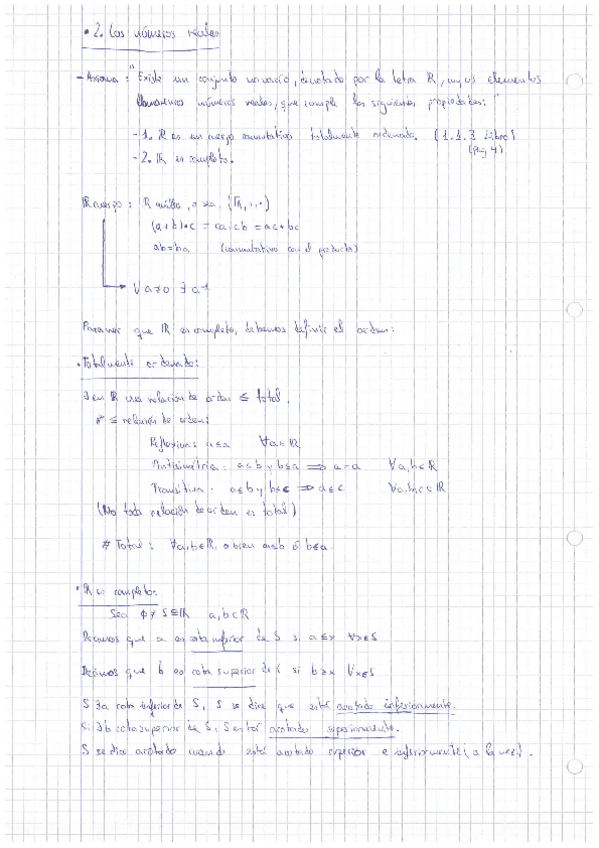 • 2. Los números reales
- Axioma: "Existe un conjunto no vacío, denotado por la letra ℝ, cuyos elementos
llamaremos números reales, que cumple las siguientes propiedades:"
- 1. ℝ es un cuerpo conmutativo totalmente ordenado. (1.1.3 Libro)
(pág 4)
- 2. ℝ es completo.
ℝ cuerpo: ℝ anillo, o sea, (ℝ, +, ·)
(a+b)·c = = ac+bc
ab=ba (conmutativo con el producto)
∀ a≠0 ∃ a⁻¹
Para ver que ℝ es completo, debemos definir el orden:
• Totalmente ordenado:
∃ en ℝ una relación de orden ≤ total.
≤ relación de orden:
Reflexiva: a≤a ∀a∈ℝ
Antisimétrica: a≤b y b≤a ⟹ a=a ∀a,b∈ℝ
Transitiva: a≤b y b≤c ⟹ a≤c ∀a,b,c∈ℝ
(No toda relación de orden es total)
# Total: ∀a,b∈ℝ, o bien a≤b ó b≤a.
• ℝ es completo:
Sea ∅≠S⊆ℝ a,b∈ℝ
Decimos que a es cota inferior de S si a≤x ∀x∈S
Decimos que b es cota superior de S si b≥x ∀x∈S
Si ∃a cota inferior de S, S se dice que está acotado inferiormente.
Si ∃b cota superior de S, S está acotado superiormente.
S se dice acotado cuando está acotado superior e inferiormente (a la vez).